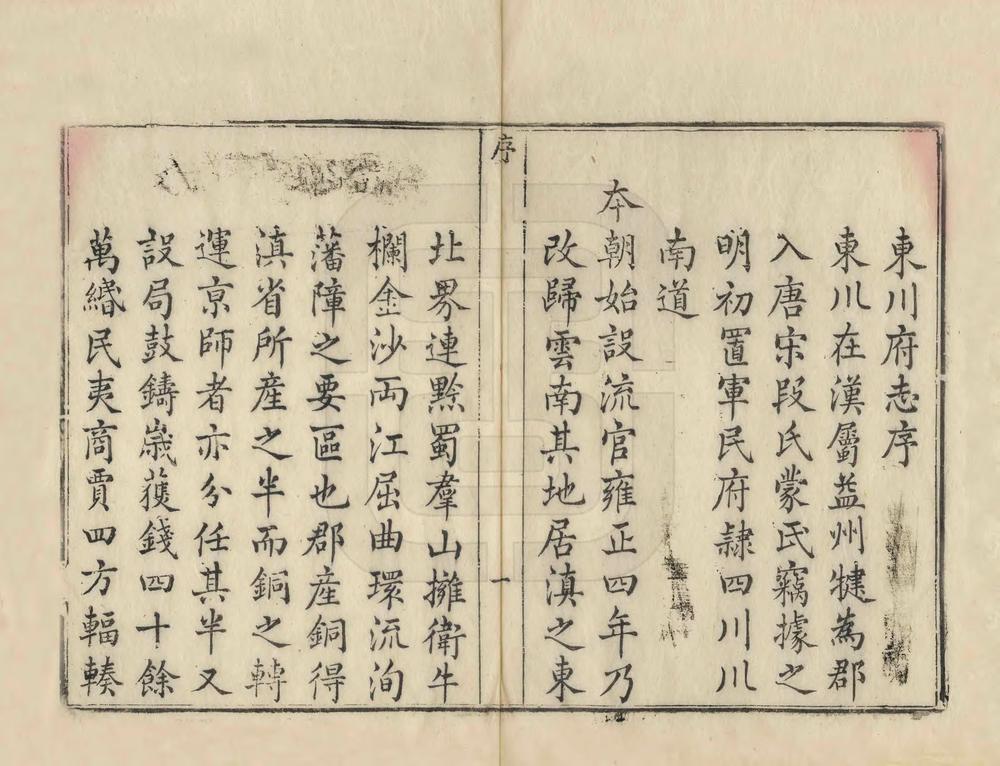 東川府志序
東川在漢屬益州犍為郡
入唐宋段氏蒙氏竊據之
明初置軍民府隷四川川
南道
本朝始設流官雍正四年乃
改歸雲南其地居滇之東
序
一
北界連黔蜀羣山擁衛牛
欄金沙两江屈曲環流洵
藩障之要區也郡産銅得
滇省所産之半而銅之轉
運京師者亦分任其半又
設局鼓鑄歲獲錢四十餘
萬緡民夷商賈四方輻輳